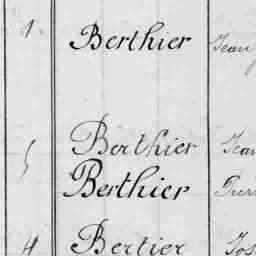 1. Berthier Jean
5 Berthier Jean
Berthier Pierr
4 Bertier Jos